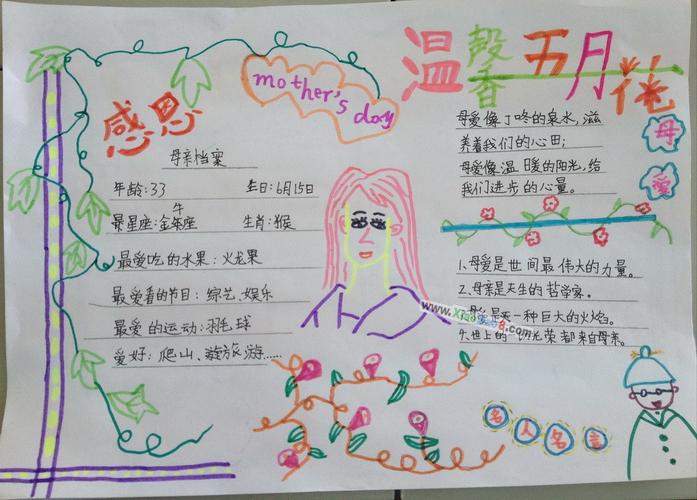 感恩
mother's day
温馨五月花
母亲档案
年龄:33 生日:6月15日
星座:金牛座 生肖:猴
最爱吃的水果:火龙果
最爱看的节目:综艺、娱乐
最爱的运动:羽毛球
爱好:爬山、旅游……
母爱像丁咚的泉水,滋
养着我们的心田;
母爱像温暖的阳光,给
我们进步的心量。
母爱
1.母爱是世间最伟大的力量。
2.母亲是天生的哲学家。
是一种巨大的火焰。
世上的一切光荣都来自母亲。
名人名言